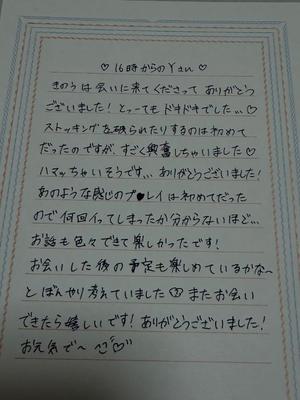 ♡16時からのYさん♡
きのうは会いに来てくださって ありがとう
ございました!とってもドキドキでした…♡
ストッキングを破られたりするのは初めて
だったのですが、すごく興奮しちゃいました♡
ハマッちゃいそうです… ありがとうございました!
あのような感じのプ●レイは初めてだった
ので何回イってしまったか分からないほど…
お話も色々できて楽しかったです!
お会いした後の予定も楽しめているかな〜
とぼんやり考えていました またお会い
できたら嬉しいです!ありがとうございました!
お元気で〜